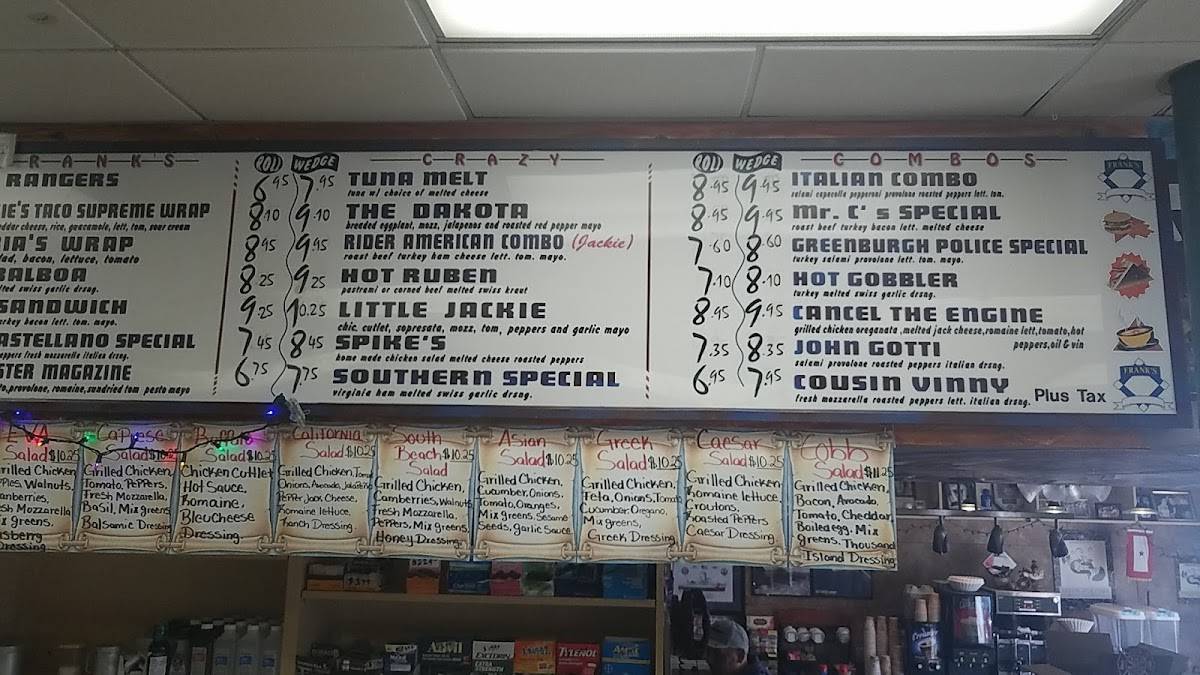 RANK'S
CRAZY
COMBOS
RANGERS
IE'S TACO SUPREME WRAP
ddar cheese, rice, guacamole, lett, tom, sour cream
IA'S WRAP
lad, bacon, lettuce, tomato
BALBOA
lted swiss garlic drsng.
SANDWICH
rkey bacon lett. tom. mayo.
ASTELLANO SPECIAL
eppers fresh mozzarella italian drsng.
STER MAGAZINE
to,provolone, romaine, sundried tom pesto mayo
ROLL WEDGE
6.95 7.95 TUNA MELT
tuna w/ choice of melted cheese
8.10 9.10 THE DAKOTA
breaded eggplant, mozz, jalapenos and roasted red pepper mayo
8.95 9.95 RIDER AMERICAN COMBO (Jackie)
roast beef turkey ham cheese lett. tom. mayo.
8.25 9.25 HOT RUBEN
pastrami or corned beef melted swiss kraut
9.25 10.25 LITTLE JACKIE
chic. cutlet, sopresata, mozz, tom, peppers and garlic mayo
7.45 8.45 SPIKE'S
home made chicken salad melted cheese roasted peppers
6.75 7.75 SOUTHERN SPECIAL
virginia ham melted swiss garlic drsng.
ROLL WEDGE
8.95 9.95 ITALIAN COMBO
salami capacolla pepperoni provolone roasted peppers lett. tom.
8.95 9.95 Mr. C's SPECIAL
roast beef turkey bacon lett. melted cheese
7.60 8.60 GREENBURGH POLICE SPECIAL
turkey salami provolone lett. tom. mayo.
7.10 8.10 HOT GOBBLER
turkey melted swiss garlic drsng.
8.95 9.95 CANCEL THE ENGINE
grilled chicken oreganata ,melted jack cheese,romaine lett,tomato,hot
peppers,oil & vin
7.35 8.35 JOHN GOTTI
salami provolone roasted peppers italian drsng.
6.95 7.95 COUSIN VINNY
fresh mozzarella roasted peppers lett. italian drsng.
Plus Tax
FRANK'S
FRANK'S
EVA
Salad $10.25
rilled Chicken
pples, Walnuts,
anberries,
esh Mozzarella
ix greens.
asberry
Dressing
Caprese
Salad $10.25
Grilled Chicken,
Tomato, Peppers,
Fresh Mozzarella,
Basil, Mix greens
Balsamic Dressing
Buffalo
Salad $10.25
Chicken Cutlet
Hot Sauce,
Romaine,
Bleu Cheese
Dressing
California
Salad $10.25
Grilled Chicken, Tom
Onions, Avocado, Jalapeño
Pepper Jack Cheese,
Romaine lettuce,
Ranch Dressing.
South
Beach $10.25
Salad
Grilled Chicken,
Camberries, Walnuts
Fresh Mozzarella,
Peppers, Mix greens
Honey Dressing
Asian
Salad $10.25
Grilled Chicken,
Cucumber, Onions,
Tomato, Oranges,
Mix greens, Sesame
Seeds, garlic Sauce
Greek
Salad $10.25
Grilled Chicken,
Feta, Onions, Tomato
Cucumber, Oregano,
Mix greens,
Greek Dressing
Caesar
Salad $10.25
Grilled Chicken
Romaine lettuce,
Croutons,
Roasted Peppers
Caesar Dressing
Cobb
Salad $11.25
Grilled Chicken,
Bacon, Avocado,
Tomato, Cheddar
Boiled egg, Mix
greens, Thousand
Island Dressing
Advil
EXCEDRIN
EXTRA STRENGTH
TYLENOL